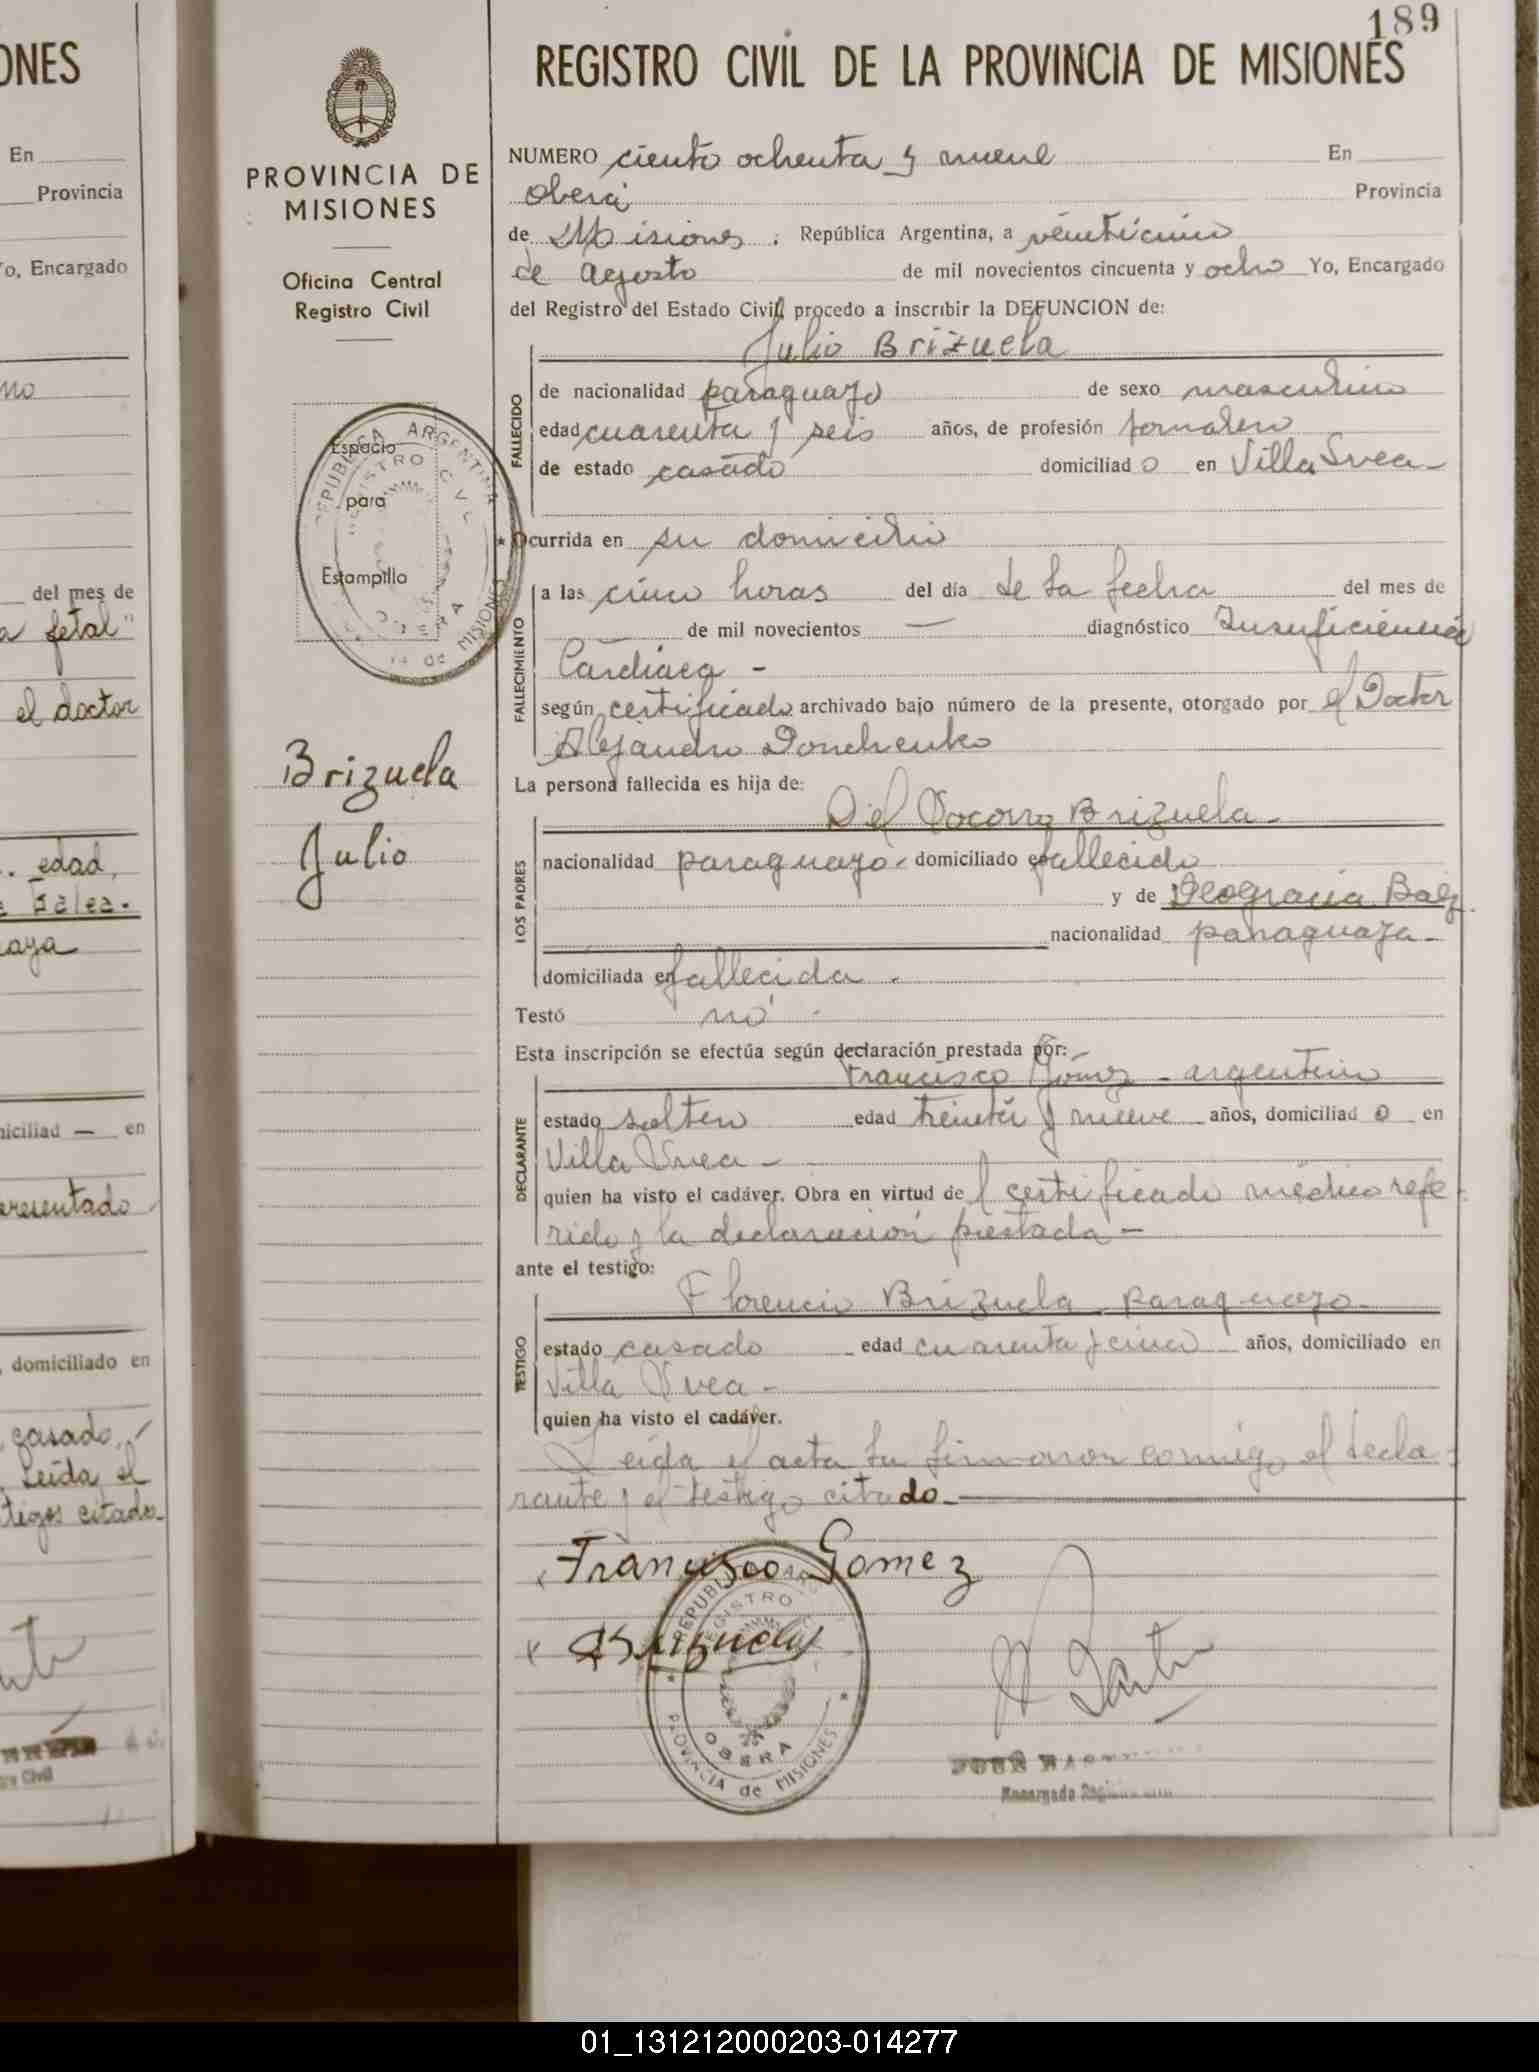 189
ONES
REGISTRO CIVIL DE LA PROVINCIA DE MISIONES
PROVINCIA DE
MISIONES
Oficina Central
Registro Civil
Espacio
para
Estampilla
REPUBLICA ARGENTINA
REGISTRO CIVIL
OBERA
de MISIONES
Brizuela
Julio
En
Provincia
o, Encargado
no
del mes de
a fetal"
el doctor
. edad,
aya
iciliad — en
presentado
, domiciliado en
casado,
Leída el
tigos citados-
Civil
NUMERO ciento ochenta y nueve En
Oberá Provincia
de Misiones, República Argentina, a veinticinco
de agosto de mil novecientos cincuenta y ocho Yo, Encargado
del Registro del Estado Civil, procedo a inscribir la DEFUNCION de:
Julio Brizuela
FALLECIDO
de nacionalidad paraguayo de sexo masculino
edad cuarenta y seis años, de profesión jornalero
de estado casado domiciliado en Villa Svea-
Ocurrida en su domicilio
FALLECIMIENTO
a las cinco horas del día de la fecha del mes de
de mil novecientos — diagnóstico Insuficiencia
Cardiaca -
según certificado archivado bajo número de la presente, otorgado por el Doctor
Alejandro Donchenko
La persona fallecida es hija de:
LOS PADRES
Del Socorro Brizuela-
nacionalidad paraguayo- domiciliado en fallecido
y de Deogracia Baez.
nacionalidad paraguaya-
domiciliada en fallecida -
Testó no -
Esta inscripción se efectúa según declaración prestada por:
DECLARANTE
Francisco Gómez - argentino
estado soltero edad treinta y nueve años, domiciliado en
Villa Svea -
quien ha visto el cadáver. Obra en virtud del certificado médico refe-
rido y la declaración prestada -
ante el testigo:
TESTIGO
Florencio Brizuela paraguayo-
estado casado edad cuarenta y cinco años, domiciliado en
Villa Svea -
quien ha visto el cadáver.
Leida el acta la firmaron conmigo el decla-
rante y el testigo citado-
Francisco Gomez
Brizuela
REPUBLICA
REGISTRO
OBERA
PROVINCIA de MISIONES
JOSE
Encargado
01_131212000203-014277